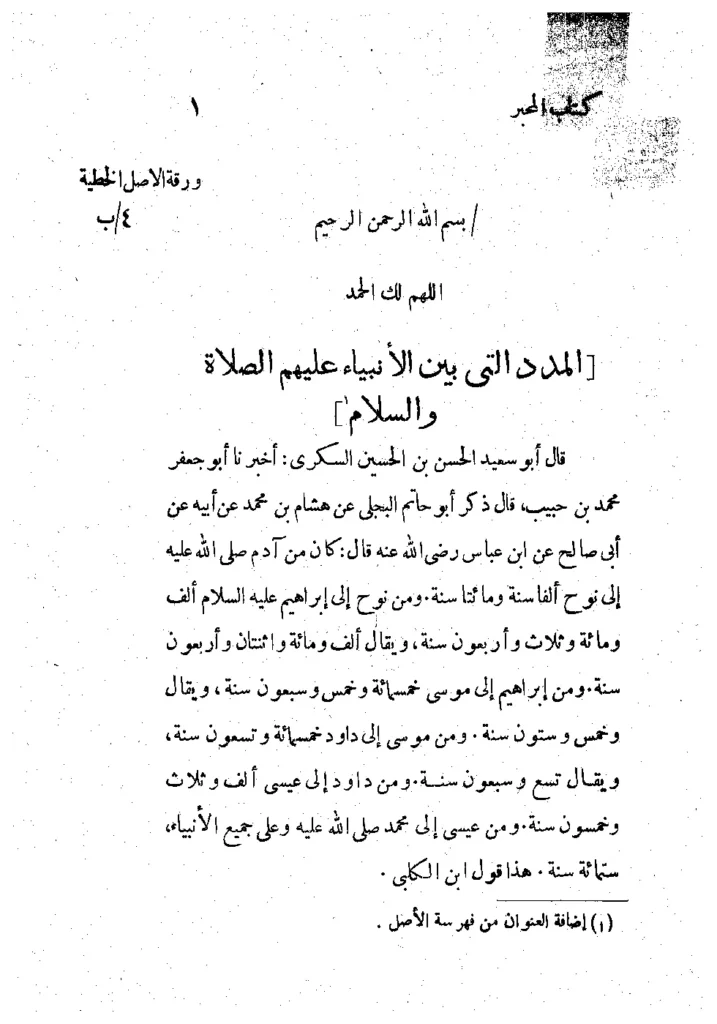 كتاب المحبر ١
ورقة الاصل الخطية
/ بسم الله الرحمن الرحيم ٤/ب
اللهم لك الحمد
[المدد التى بين الأنبياء عليهم الصلاة
والسلام¹]
قال أبو سعيد الحسن بن الحسين السكرى: أخبرنا أبو جعفر
محمد بن حبيب، قال ذكر أبو حاتم البجلى عن هشام بن محمد عن أبيه عن
أبى صالح عن ابن عباس رضى الله عنه قال: كان من آدم صلى الله عليه
إلى نوح ألفا سنة ومائتا سنة. ومن نوح إلى إبراهيم عليه السلام ألف
ومائة وثلاث وأربعون سنة، ويقال ألف ومائة واثنتان وأربعون
سنة. ومن إبراهيم إلى موسى خمسمائة وخمس وسبعون سنة، ويقال
وخمس وستون سنة. ومن موسى إلى داود خمسمائة وتسعون سنة،
ويقال تسع وسبعون سنة. ومن داود إلى عيسى ألف وثلاث
وخمسون سنة. ومن عيسى إلى محمد صلى الله عليه وعلى جميع الأنبياء،
ستمائة سنة. هذا قول ابن الكلبى.
(١) إضافة العنوان من فهرسة الأصل.